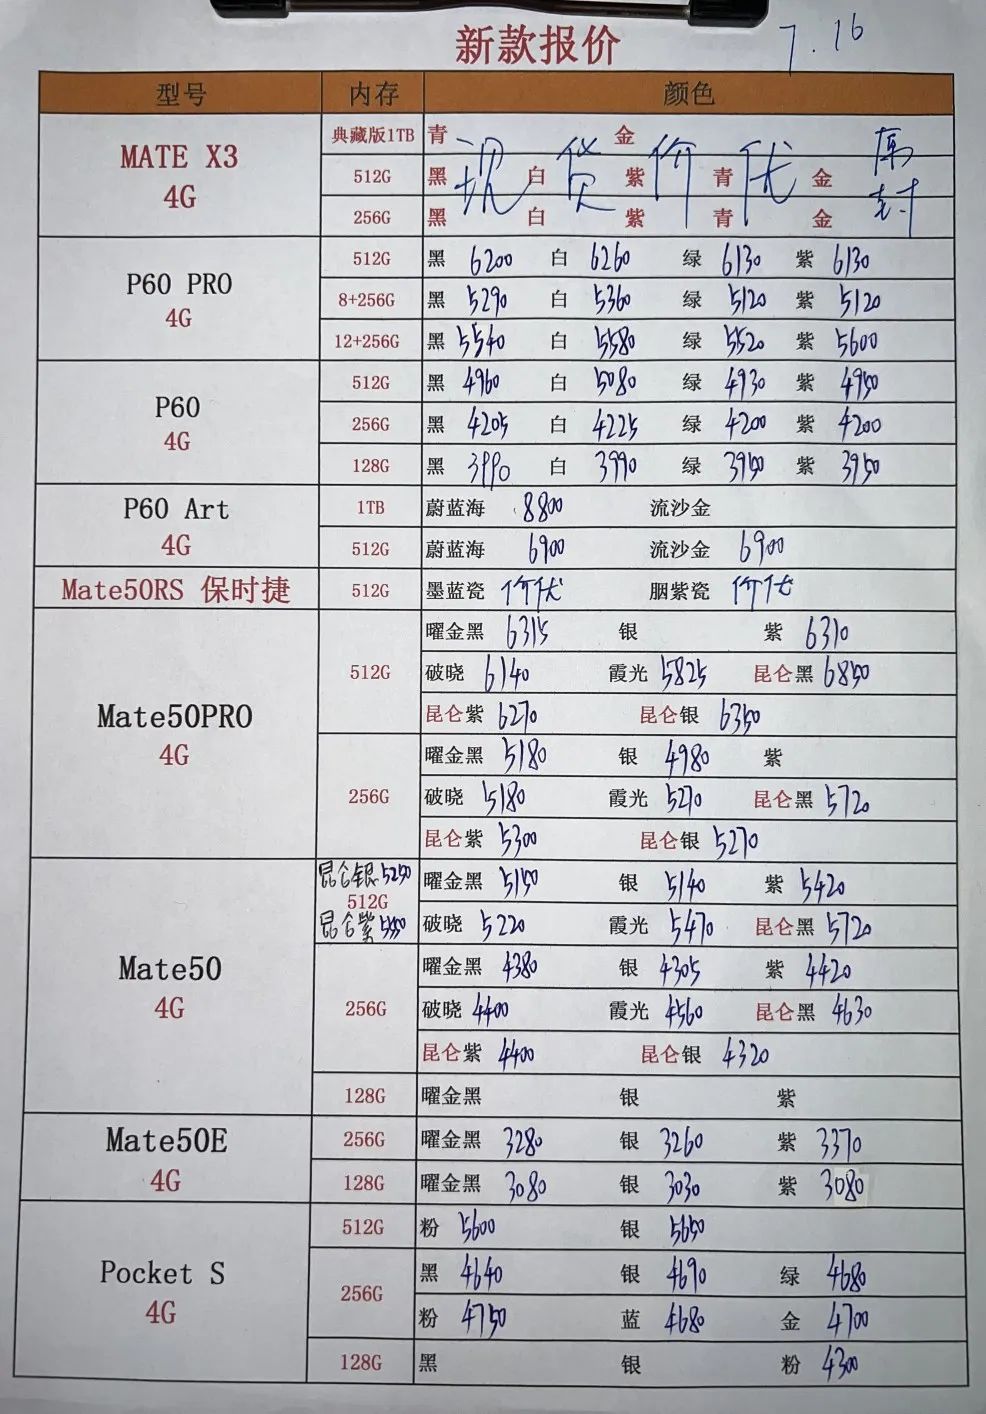 新款报价 7.16
型号 内存 颜色
MATE X3 4G
典藏版1TB 青 金
512G 黑 白 紫 青 金
256G 黑 白 紫 青 金
现货价优 原封
P60 PRO 4G
512G 黑 6200 白 6260 绿 6130 紫 6130
8+256G 黑 5290 白 5360 绿 5120 紫 5120
12+256G 黑 5540 白 5580 绿 5520 紫 5600
P60 4G
512G 黑 4960 白 5080 绿 4930 紫 4950
256G 黑 4205 白 4225 绿 4200 紫 4200
128G 黑 3990 白 3990 绿 3950 紫 3950
P60 Art 4G
1TB 蔚蓝海 8800 流沙金
512G 蔚蓝海 6900 流沙金 6900
Mate50RS 保时捷 512G 墨蓝瓷 价优 胭紫瓷 价优
Mate50PRO 4G
512G 曜金黑 6315 银 紫 6310
破晓 6140 霞光 5825 昆仑黑 6850
昆仑紫 6270 昆仑银 6350
256G 曜金黑 5180 银 4980 紫
破晓 5180 霞光 5270 昆仑黑 5720
昆仑紫 5300 昆仑银 5270
Mate50 4G
昆仑银 5250 曜金黑 5150 银 5140 紫 5420
512G
昆仑紫 5550 破晓 5220 霞光 5470 昆仑黑 5720
256G 曜金黑 4380 银 4305 紫 4420
破晓 4400 霞光 4560 昆仑黑 4630
昆仑紫 4400 昆仑银 4320
128G 曜金黑 银 紫
Mate50E 4G
256G 曜金黑 3280 银 3260 紫 3370
128G 曜金黑 3080 银 3030 紫 3080
Pocket S 4G
512G 粉 5600 银 5650
256G 黑 4640 银 4690 绿 4680
粉 4750 蓝 4680 金 4700
128G 黑 银 粉 4300